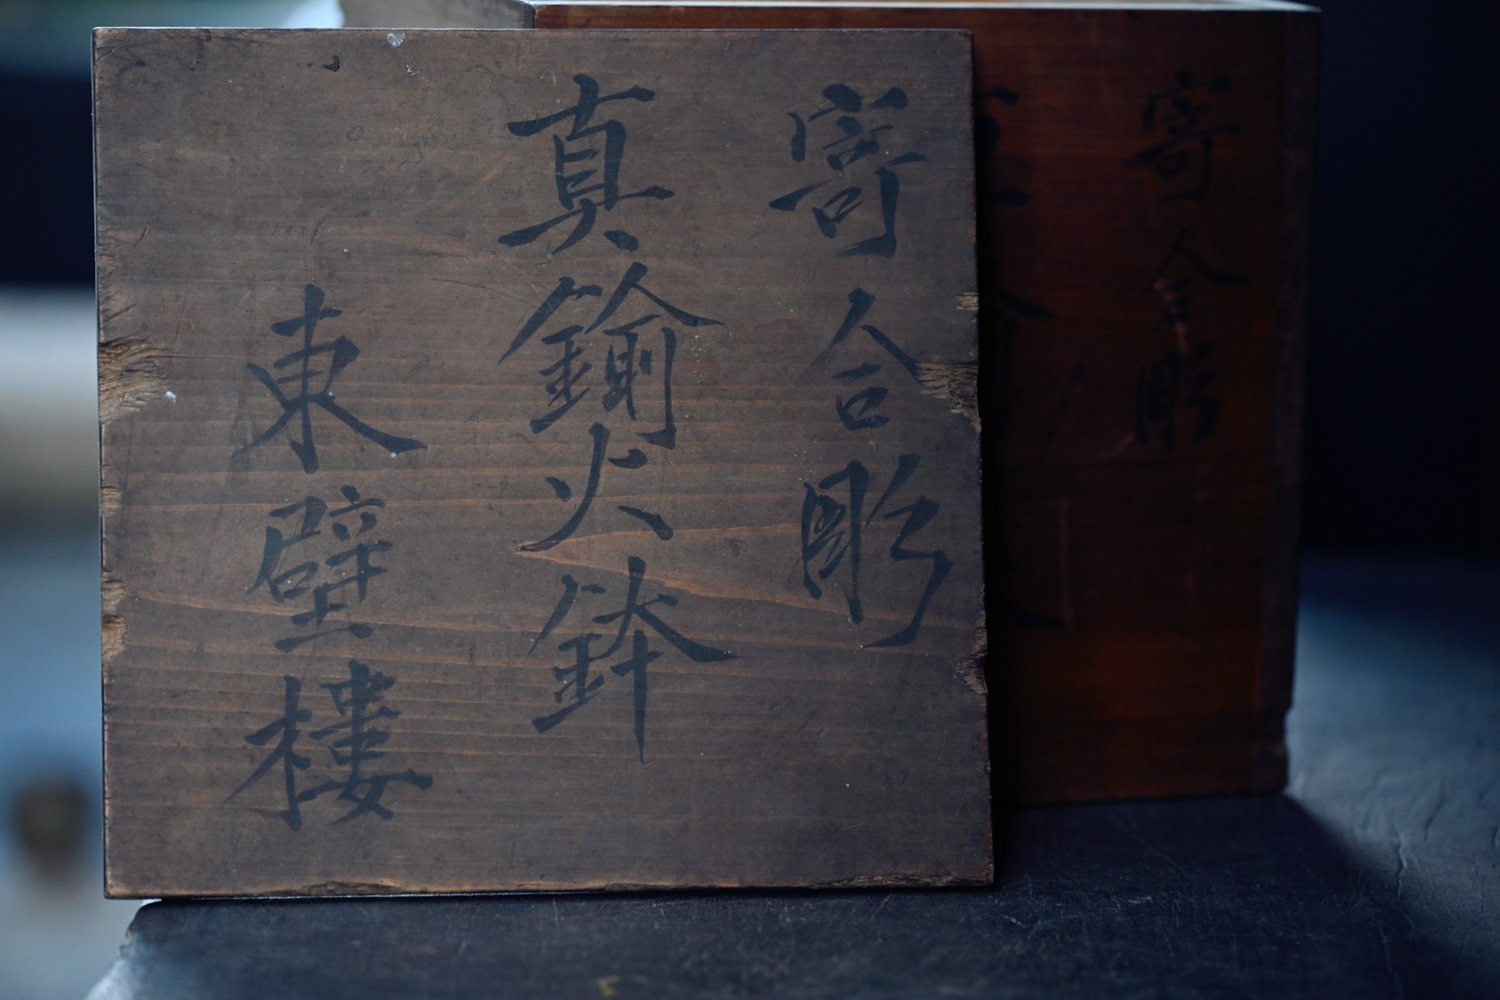 寄合彫
真鍮火鉢
東壁樓
寄合彫